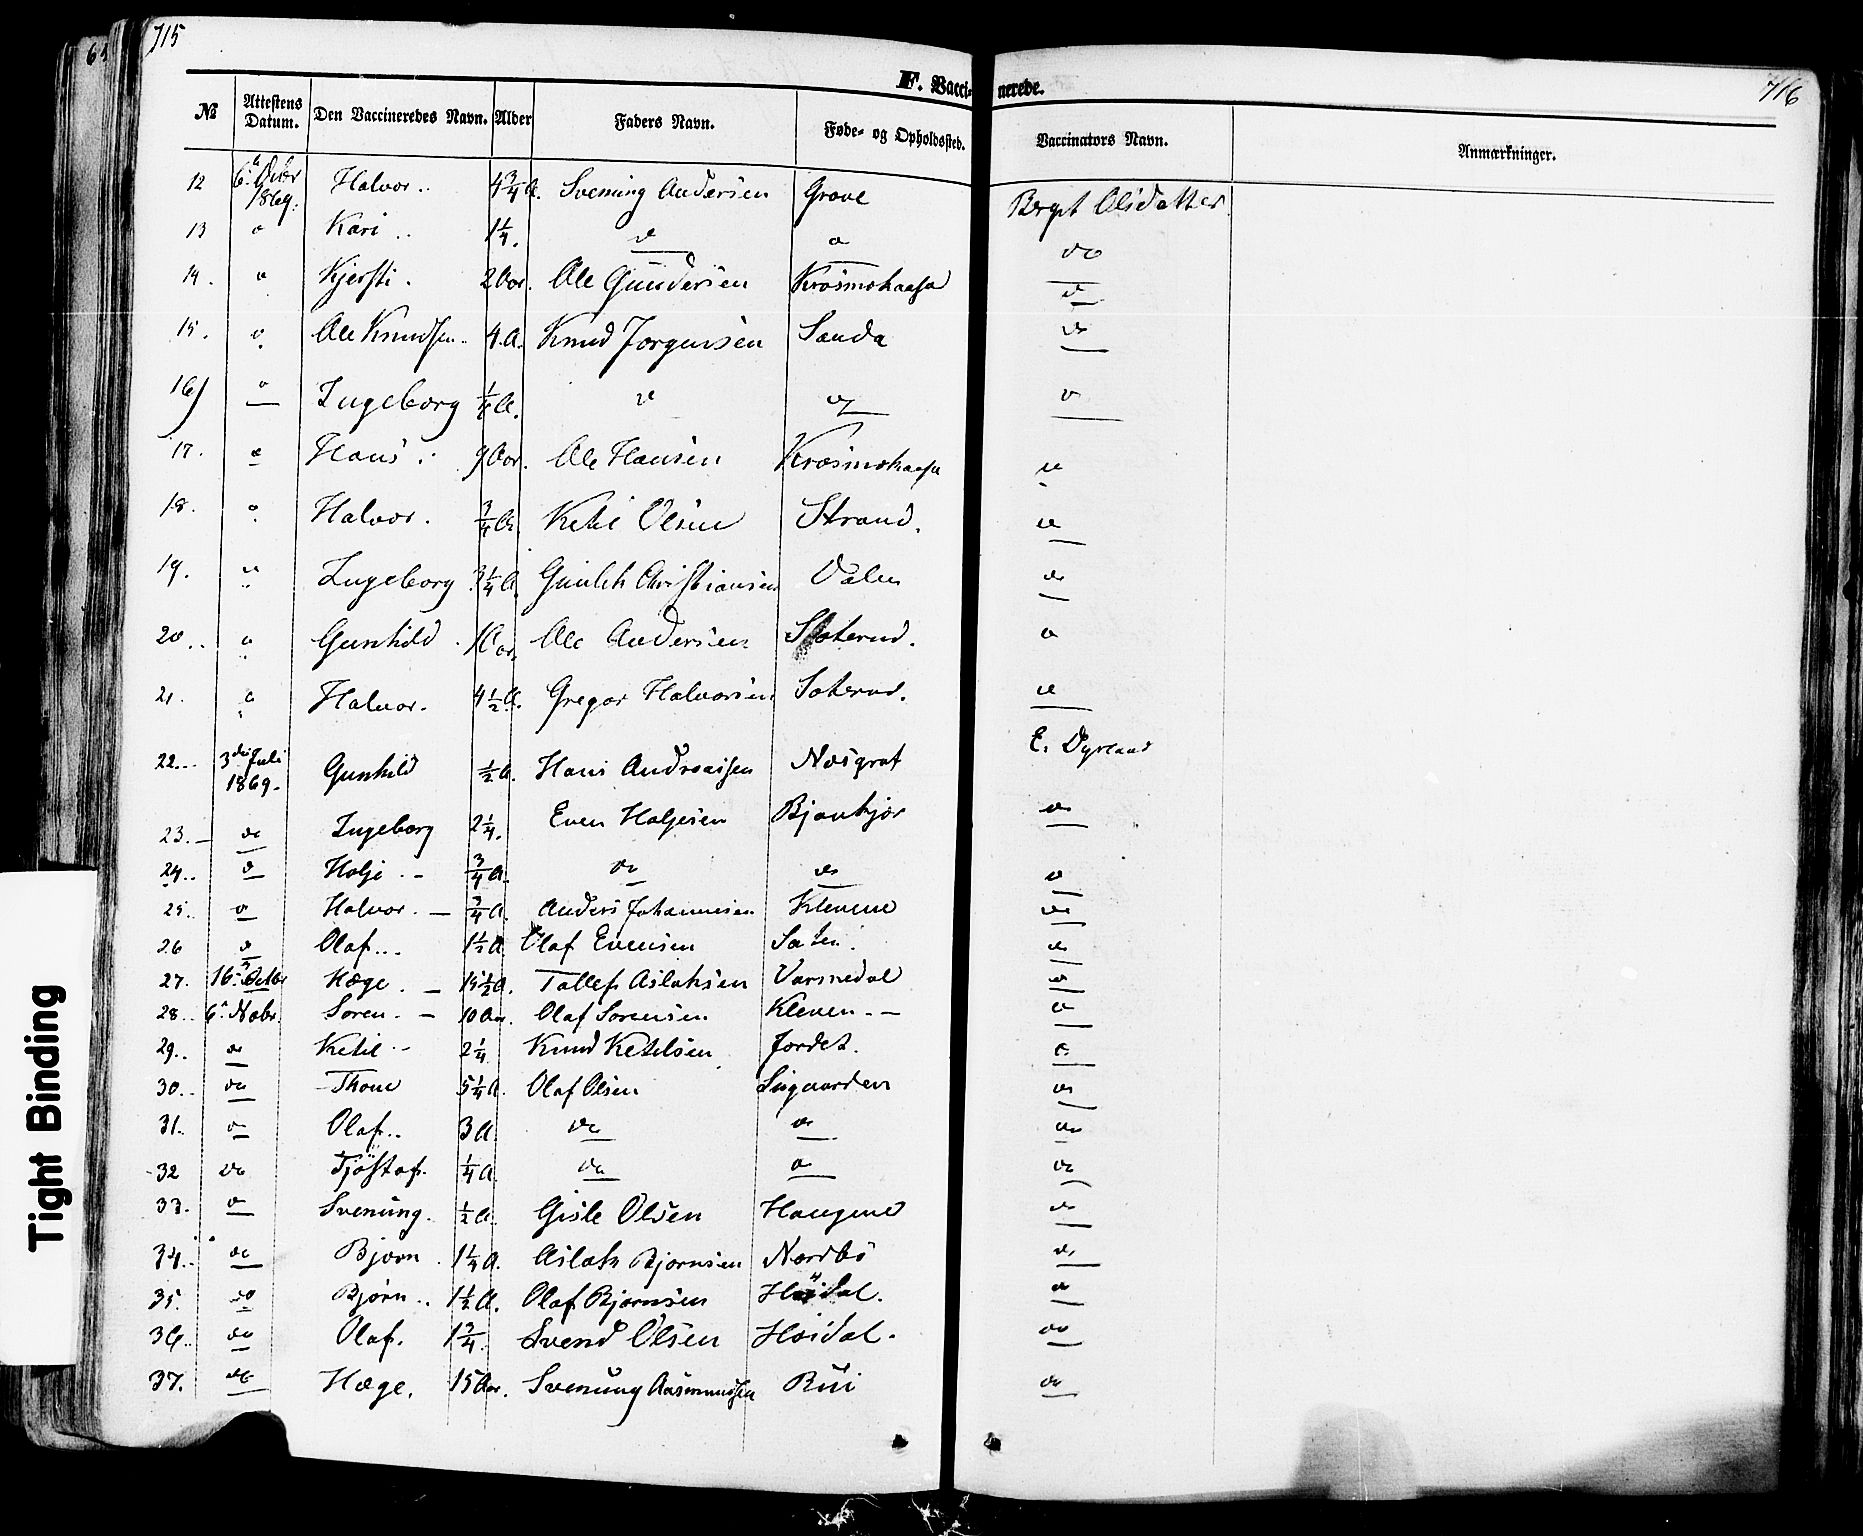 715
716
F. Vaccinerede.
№ Attestens Datum. Den Vaccineredes Navn. Alder Faders Navn. Føde- og Opholdssted. Vaccinators Navn. Anmærkninger.
12 6. 1869. Halvor .. 4 3/4 A. Svenung Andersen Grave Berget Olsdatter
13 do Kari .. 1 1/4. do do do
14. do Kjersti . 2 Aar. Ole Gundersen do
15. do Ole Knudsen.. 4.A. Knud Jørgensen Sanda do
16) do Ingeborg A. do do do
17. do Hans . 9 Aar. Ole Hansen do
18. do Halvor . 3/4 A. Ketil Olsen Strand. do
19. do Ingeborg 3 1/4 A. Gunleik Christiansen Dalen do
20.. do Gunhild . Aar. Ole Andersen do
21. do Halvor. 4 1/2 A. Gregar Halvorsen Soterud. do
22... 3die Juli 1869. Gunhild 1/2 A. Hans Andreassen Næsgrat E. Dyrland
23.- do Ingeborg 2 1/4. Even Holjesen do
24.. do Holje . - 3/4 A. do do do
25.. do Halvor. - 3/4 A. Anders Johannesen Klevene do
26 do Olaf... 1 1/2 A Olaf Evensen do
27. 16. Octbr Hæge . - 15 1/2 A. Tallef Aslaksen Varsnedal do
28.. 6. Nobr. Søren. - 10 Aar. Olaf Sørensen Kleven. - do
29.. do Ketil .- 2 1/4 Knud Ketilsen Jordet. do
30.. do Thone 5 1/4 A. Olaf Olsen do
31. do Olaf.. 3 A. do do do
32 do Tjøstaf. 1/4 A. do do do
33. do Svenung. 1/2 A. Gisle Olsen Haugene do
34.. do Bjørn . 1 1/4 A. Aslak Bjørnsen Nordbø do
35. do Bjørn .. 1 1/2 A. Olaf Bjørnsen Høidal. do
36.. do Olaf. 1 3/4. Svend Olsen Høidal. do
37. do Hæge. 15 Aar. Svenung Aasmundsen Bui do
Tight Binding